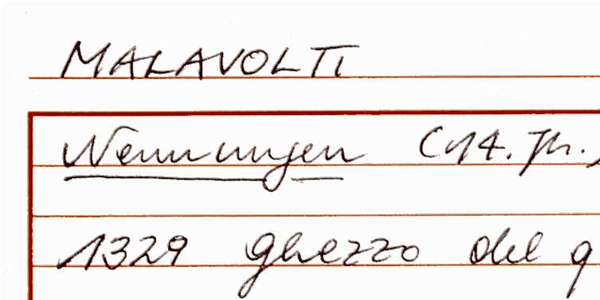 MALAVOLTI
Nennungen (14. Jh.)
1329 ghezzo del q